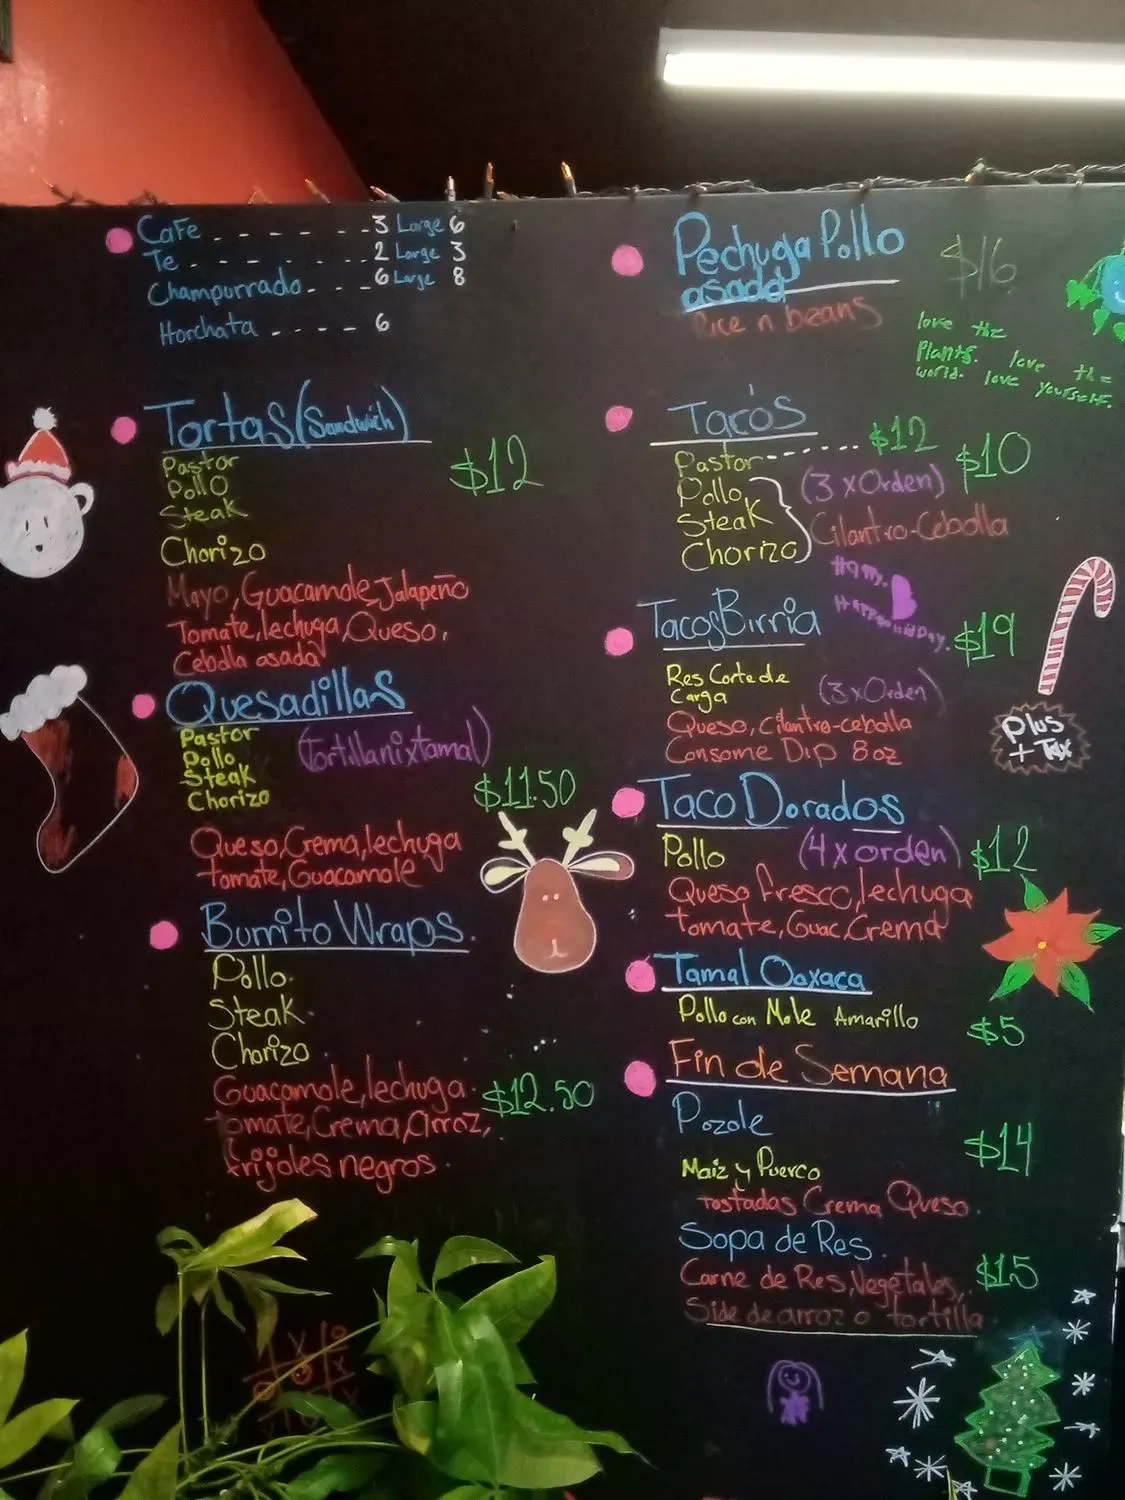 Cafe - - - - - - - 3 Large 6
Te - - - - - - - - 2 Large 3
Champurrado - - - 6 Large 8
Horchata - - - - 6
Tortas (Sandwich)
Pastor
Pollo
Steak
Chorizo
$12
Mayo, Guacamole, Jalapeño
Tomate, lechuga, Queso,
Cebolla asada
Quesadillas
Pastor
(Tortilla nixtamal)
Pollo
Steak
Chorizo
$11.50
Queso, Crema, lechuga
tomate, Guacamole
Burrito Wraps.
Pollo.
Steak.
Chorizo
Guacamole, lechuga.
$12.50
tomate, Crema, arroz,
frijoles negros.
Pechuga Pollo
asada
$16
Rice n beans
love the
Plants. love the
world. love yourself.
Tacos
Pastor - - - - - - $12
$10
Pollo
(3 x Orden)
Steak
Cilantro-Cebolla
Chorizo
Tacos Birria
$19
Res Corte de
Carga
(3 x Orden)
Queso, Cilantro-cebolla
Consome Dip 8oz
Plus
+ Tax
Taco Dorados
Pollo
(4 x orden)
$12
Queso fresco, lechuga
tomate, Guac, Crema
Tamal Oaxaca
Pollo con Mole Amarillo
$5
Fin de Semana
Pozole
$14
Maiz y Puerco
Tostadas Crema Queso.
Sopa de Res.
Carne de Res, Vegetales,.
$15
Side de arroz o tortilla.